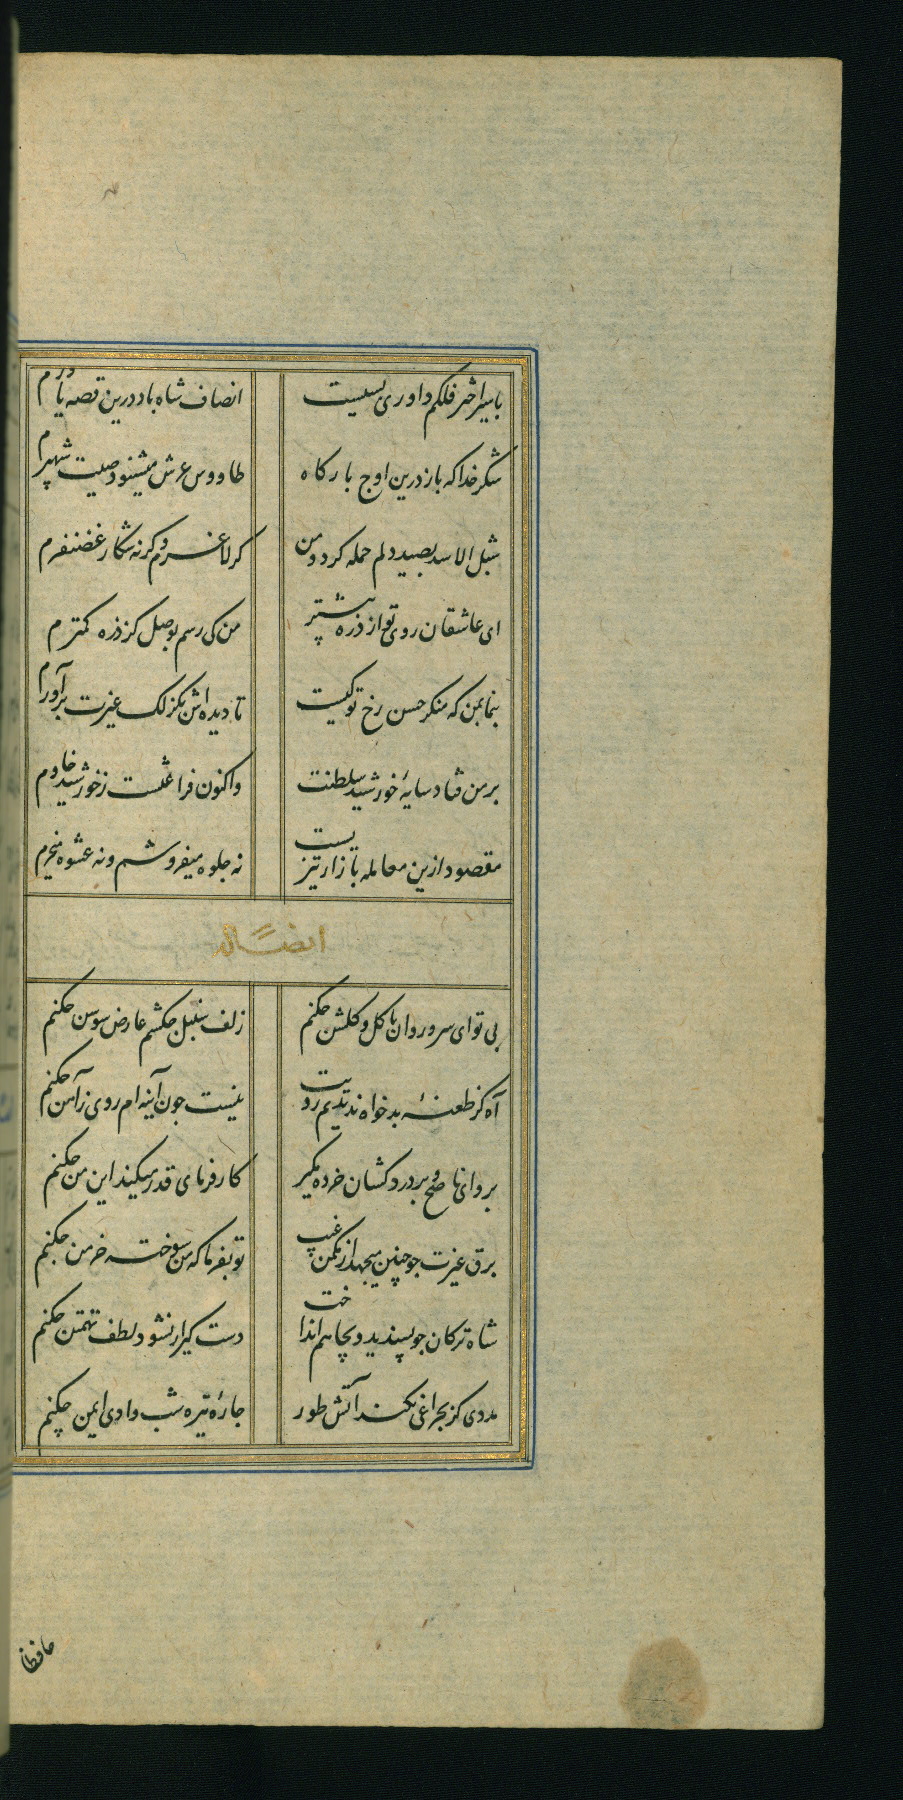 با سیر اختر فلکم داوری بسیست انصاف شاه باد درین قصه یاورم
شکر خدا که باز درین اوج بارکاه طاووس عرش میشنود صیت شهپرم
شبل الاسد بصید دلم حمله کرد و من کر لاغرم و کرنه شکار غضنفرم
ای عاشقان روی تو از ذره بیشتر من کی رسم بوصل کز ذره کمترم
بنما بمن که منکر حسن رخ تو کیست تا دیده اش بکزلک غیرت برآورم
بر من فتاد سایهٔ خورشید سلطنت واکنون فراغتست ز خورشید خاورم
مقصود ازین معامله بازار تیزیست نه جلوه میفروشم و نه عشوه میخرم
ایضاً له
بی تو ای سرو روان با کل و کلشن چکنم زلف سنبل چکشم عارض سوسن چکنم
آه کز طعنهٔ بدخواه ندیدیم رویت نیست جون آینه ام روی ز آهن چکنم
برو ای ناصح و بر دردکشان خرده مکیر کارفرمای قدر میکند این من چکنم
برق غیرت جو چنین میجهد از مکمن غیب تو بفرما که من سوخته خرمن چکنم
شاه ترکان جو پسندید و بچاهم انداخت دست کیر ار نشود لطف تهمتن چکنم
مددی کر بچراغی نکند آتش طور چارهٔ تیره شب وادی ایمن چکنم
حافظا